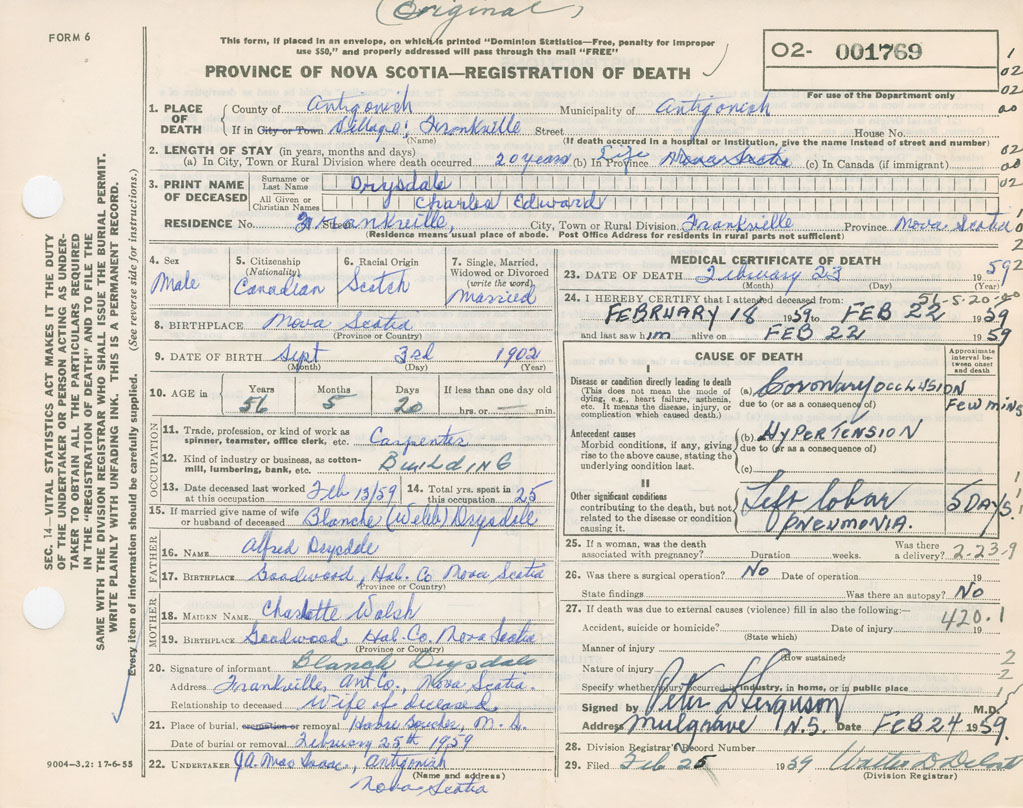 (Original)
FORM 6
This form, if placed in an envelope, on which is printed "Dominion Statistics—Free, penalty for improper
use $50," and properly addressed will pass through the mail "FREE"
PROVINCE OF NOVA SCOTIA—REGISTRATION OF DEATH
02- 001769
For use of the Department only
1. PLACE OF DEATH County of Antigonish Municipality of Antigonish
If in City or Town Village: Frankville Street House No.
(Name) (If death occurred in a hospital or institution, give the name instead of street and number)
2. LENGTH OF STAY (in years, months and days)
(a) In City, Town or Rural Division where death occurred 20 years (b) In Province Life Nova Scotia (c) In Canada (if immigrant)
3. PRINT NAME OF DECEASED Surname or Last Name Drysdale
All Given or Christian Names Charles Edward
RESIDENCE No. Street Frankville, City, Town or Rural Division Frankville Province Nova Scotia
(Residence means usual place of abode. Post Office Address for residents in rural parts not sufficient)
4. Sex Male
5. Citizenship (Nationality) Canadian
6. Racial Origin Scotch
7. Single, Married, Widowed or Divorced (write the word) Married
8. BIRTHPLACE Nova Scotia
(Province or Country)
9. DATE OF BIRTH Sept 3rd 1902
(Month) (Day) (Year)
10. AGE in Years 56 Months 5 Days 20 If less than one day old hrs. or — min.
OCCUPATION
11. Trade, profession, or kind of work as spinner, teamster, office clerk, etc. Carpenter
12. Kind of industry or business, as cotton-mill, lumbering, bank, etc. BUILDING
13. Date deceased last worked at this occupation Feb 13/59
14. Total yrs. spent in this occupation 25
15. If married give name of wife or husband of deceased Blanche (Webb) Drysdale
FATHER
16. NAME Alfred Drysdale
17. BIRTHPLACE Goodwood, Hal. Co. Nova Scotia
(Province or Country)
MOTHER
18. MAIDEN NAME Charlotte Walsh
19. BIRTHPLACE Goodwood, Hal. Co. Nova Scotia
(Province or Country)
20. Signature of informant Blanch Drysdale
Address Frankville, Ant Co., Nova Scotia.
Relationship to deceased Wife of deceased
21. Place of burial, cremation or removal Havre Boucher, N. S.
Date of burial or removal February 25th 1959
22. UNDERTAKER J.A. Mac Isaac, Antigonish
(Name and address)
Nova Scotia
MEDICAL CERTIFICATE OF DEATH
23. DATE OF DEATH February 23 1959
(Month) (Day)
24. I HEREBY CERTIFY that I attended deceased from: 56-5-20
FEBRUARY 18 1959 to FEB 22 1959
and last saw him alive on FEB 22 1959
CAUSE OF DEATH
Approximate interval between onset and death
I
Disease or condition directly leading to death
(This does not mean the mode of dying, e.g., heart failure, asthenia, etc. It means the disease, injury, or complication which caused death.)
(a) Coronary OCCLUSION FEW MINS
due to (or as a consequence of)
Antecedent causes
Morbid conditions, if any, giving rise to the above cause, stating the underlying condition last.
(b) HYPERTENSION
due to (or as a consequence of)
(c)
II
Other significant conditions contributing to the death, but not related to the disease or condition causing it.
Left lobar PNEUMONIA. 5 DAYS.
25. If a woman, was the death associated with pregnancy? Duration weeks. Was there a delivery? 2-23-9
26. Was there a surgical operation? No Date of operation 19
State findings Was there an autopsy? No
27. If death was due to external causes (violence) fill in also the following:—
Accident, suicide or homicide? Date of injury 19
(State which)
420.1
Manner of injury
(How sustained)
Nature of injury
Specify whether injury occurred in industry, in home, or in public place
Signed by Peter D Ferguson M.D.
Address Mulgrave N.S. Date FEB 24 1959.
28. Division Registrar's Record Number
29. Filed Feb 25 1959
(Division Registrar)
SEC. 14—VITAL STATISTICS ACT MAKES IT THE DUTY
OF THE UNDERTAKER OR PERSON ACTING AS UNDER-
TAKER TO OBTAIN ALL THE PARTICULARS REQUIRED
IN THE "REGISTRATION OF DEATH" AND TO FILE THE
SAME WITH THE DIVISION REGISTRAR WHO SHALL ISSUE THE BURIAL PERMIT.
WRITE PLAINLY WITH UNFADING INK. THIS IS A PERMANENT RECORD.
Every item of information should be carefully supplied. (See reverse side for instructions.)
9004—3.2: 17-6-55